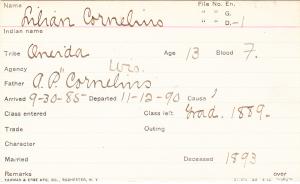 Name Lilian Cornelius File No. En.
" " G.
" " D.-1
Indian name
Tribe Oneida Age 13 Blood 7.
Agency Wis.
Father A. P. Cornelius
Arrived 9-30-85 Departed 11-12-90 Cause
Class entered Class left Grad. 1889.
Trade Outing
Character
Married Deceased 1893
Remarks over